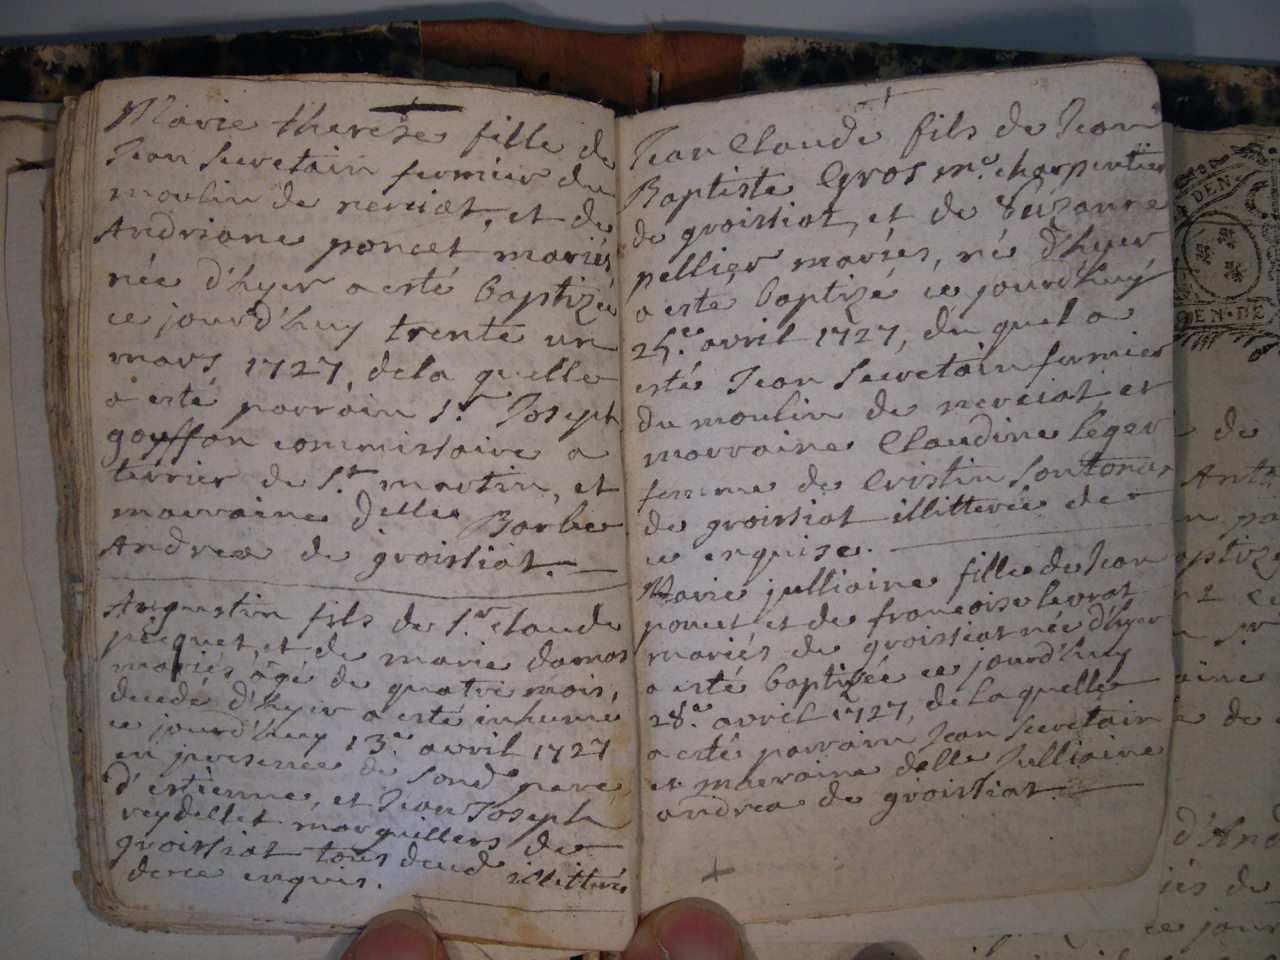 Marie therese fille de
Jean Secretain fermier du
moulin de nerciat, et de
Andriane poncet mariés,
née d'hyer a esté baptizée
ce jourd'huy trente un
mars 1727, dela quelle
a esté parrain Sr Joseph
gouffon commissaire a
terrier de St martin, et
marraine delle Barbe
Andrea de groissiat.
Augustin fils de Sr claude
picquet, et de marie damas
mariés âgé de quatre mois,
decedé d'hyer a esté inhumé
ce jourd'huy 13e avril 1727
en presence de sond pere,
d'estienne, et Jean Joseph
reydellet marguilliers de
groissiat tous deux illitterés
dece enquis.
Jean Claude fils de Jean
Baptiste Gros me charpentier
de groissiat, et de Suzanne
pellier mariés, né d'hyer
a esté baptizé ce jourd'huy
25e avril 1727, du quel a
esté Jean Secretain fermier
du moulin de nerciat et
marraine Claudine leger
femme de Cristin Sontonas
de groissiat illitterée de
ce enquise.
Marie julliaine fille de Jean
poncet et de francoise levrat
mariés de groissiat née d'hyer
a esté baptizée ce jourd'huy
28e avril 1727, de la quelle
a esté parrain Jean Secretain
et marraine delle Julliaine
andrea de groissiat.
DEN
DEN·DE
de
d'And
de
ce jour